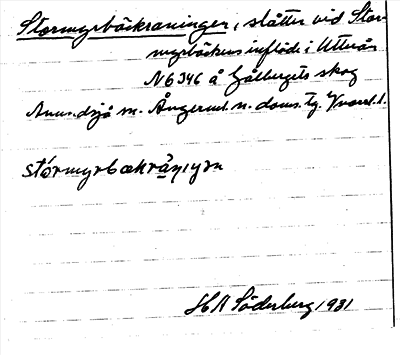 Stormyrbäckraningar, slåtter vid Stor-
myrbäckens inflöde i Utterån
N6346 å Gålbergets skog
Anundsjö sn. Ångerml. n. doms. tg. Kvarnl.
stórmyrbækràniɳan
H A Söderberg 1931